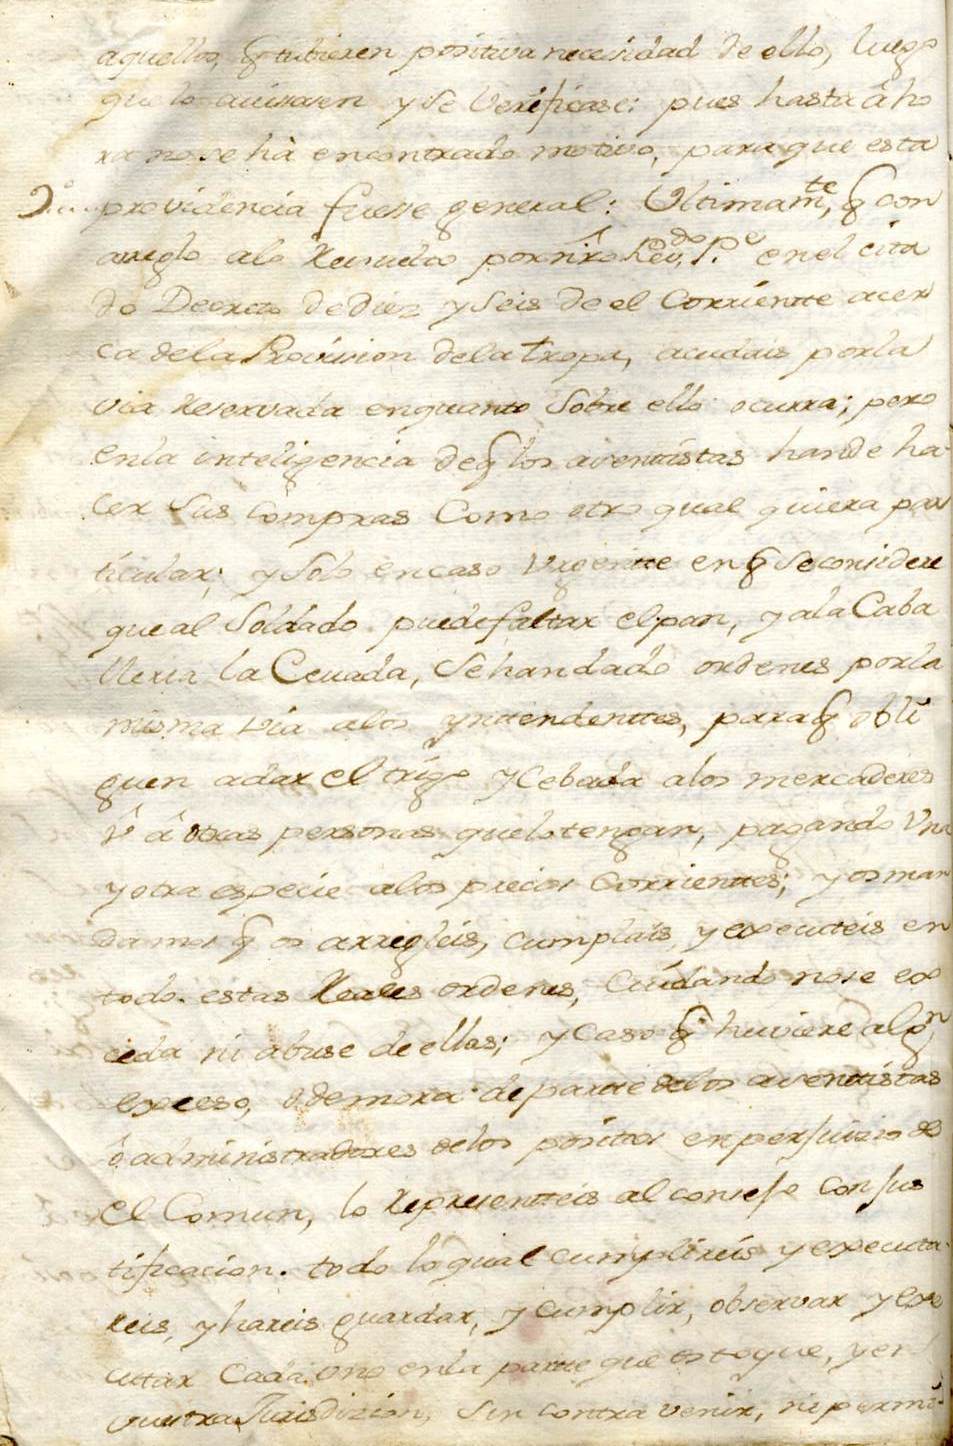 aquellos, q tubieren positiva necesidad de ello, luego
que lo avisasen y se Verificase: pues hasta âho
ra no se hà encontrado motivo, para que esta
providencia fuese general: Ultimamte, q con
areglo alo Resuelto por nro Revdo Pe en el cita
do Decreto de diez y seis de el Corriente acer
ca dela Provision dela tropa, acudais por la
via Reservada en quanto Sobre ello ocurra; pero
en la inteligencia de q los aventistas han de ha
cer Sus Compras Como otro qual quiera par
ticular; y Solo en caso Urgente en q se considere
que al Soldado puede faltar el pan, y ala Caba
lleria la Cevada, Se han dado ordenes por la
misma via alos yntendenttes, para q obli
guen adar el trigo y Cebada alos mercaderes
û â otras personas que lo tengan, pagando Una
y otra especie alos precios Corrienttes; y os man
damos q os arregleis, cumplais, y executeis en
todo estas Reales ordenes, Cuidando no se ex
ceda ni abuse de ellas; y caso q huviere algn
exceso, o demora de parte delos aventtistas
ô administradores delos positos en perjuizio de
el Comun, lo Representteis al consejo con jus
tificacion. todo lo qual cumplireis y executa
reis, y hareis guardar, y cumplir, observar y exe
cuttar Cada uno en la partte que os toque, y en
vuestra Jurisdizion, Sin contra venir, ni permi